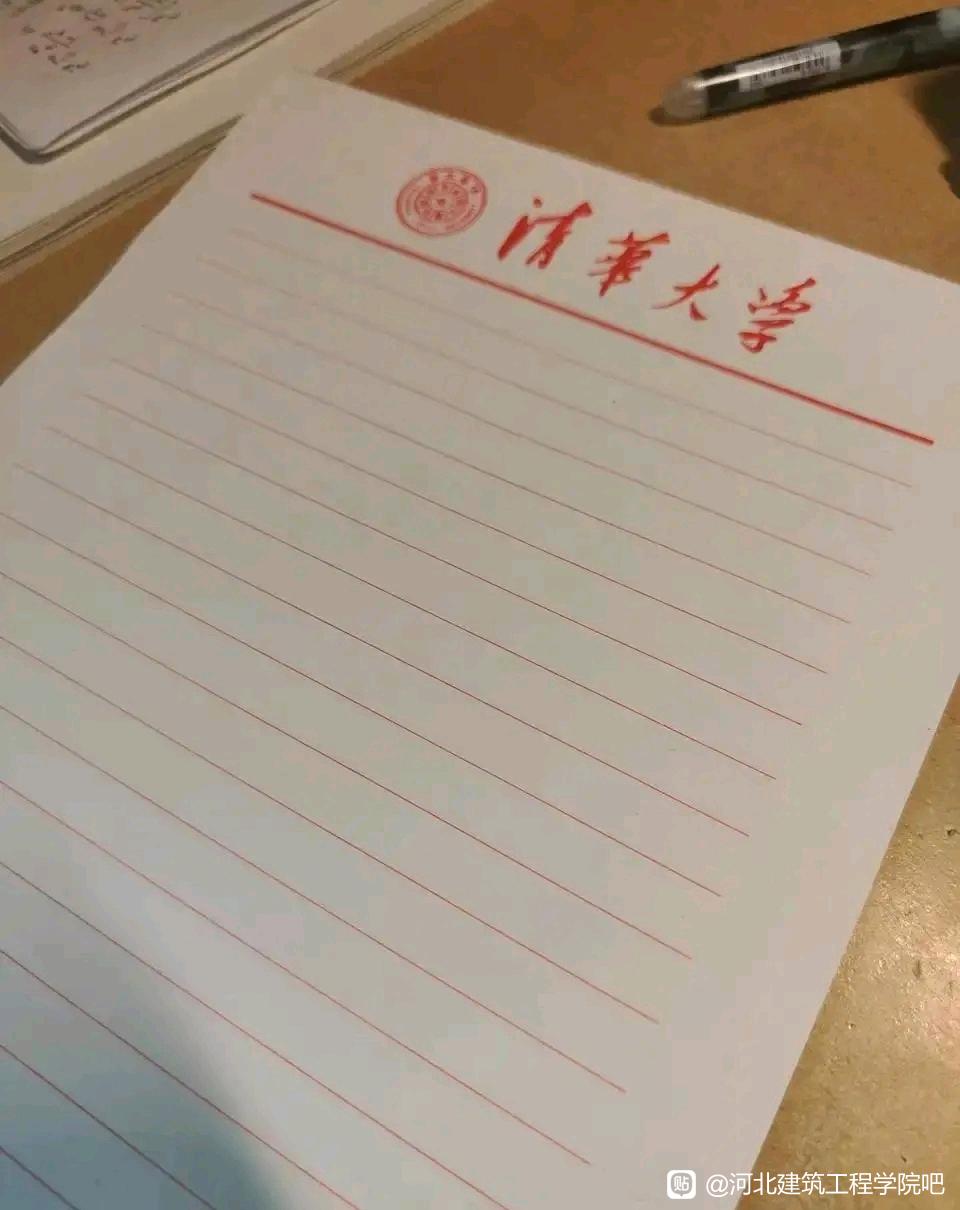 清華大学
@河北建筑工程学院吧